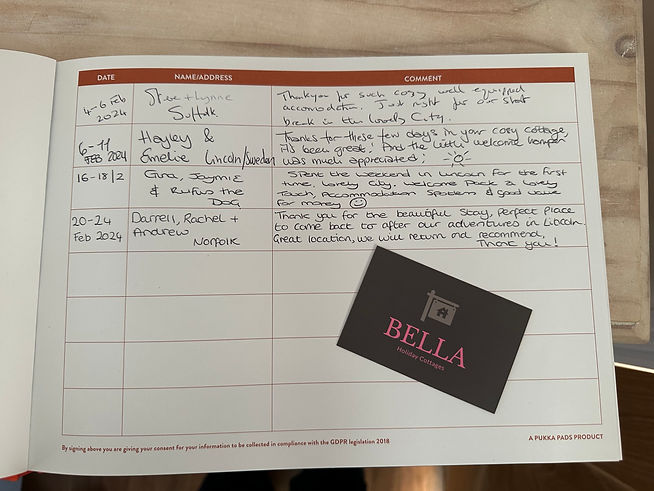 DATE NAME/ADDRESS COMMENT
4-6 Feb
2024
Steve + Lynne
Suffolk
Thankyou for such cosy well equipped
accomodation. Just right for our short
break in this lovely City.
6-11
FEB 2024
Hayley &
Emelie Lincoln/Sweden
Thanks for these few days in your cosy cottage,
it's been great! And the little welcome hamper
was much appreciated!
16-18/2
Gina, Jaymie
& Rufus the
Dog
Spent the weekend in Lincoln for the first
time, lovely City. Welcome Pack a lovely
Touch, Accommodation Spotless & good value
for money
20-24
Feb 2024
Darrell, Rachel +
Andrew
Norfolk
Thank you for the beautiful stay, perfect place
to come back to after our adventures in Lincoln.
Great location, we will return and recommend,
Thank you!
BELLA
Holiday Cottages
By signing above you are giving your consent for your information to be collected in compliance with the GDPR legislation 2018
A PUKKA PADS PRODUCT